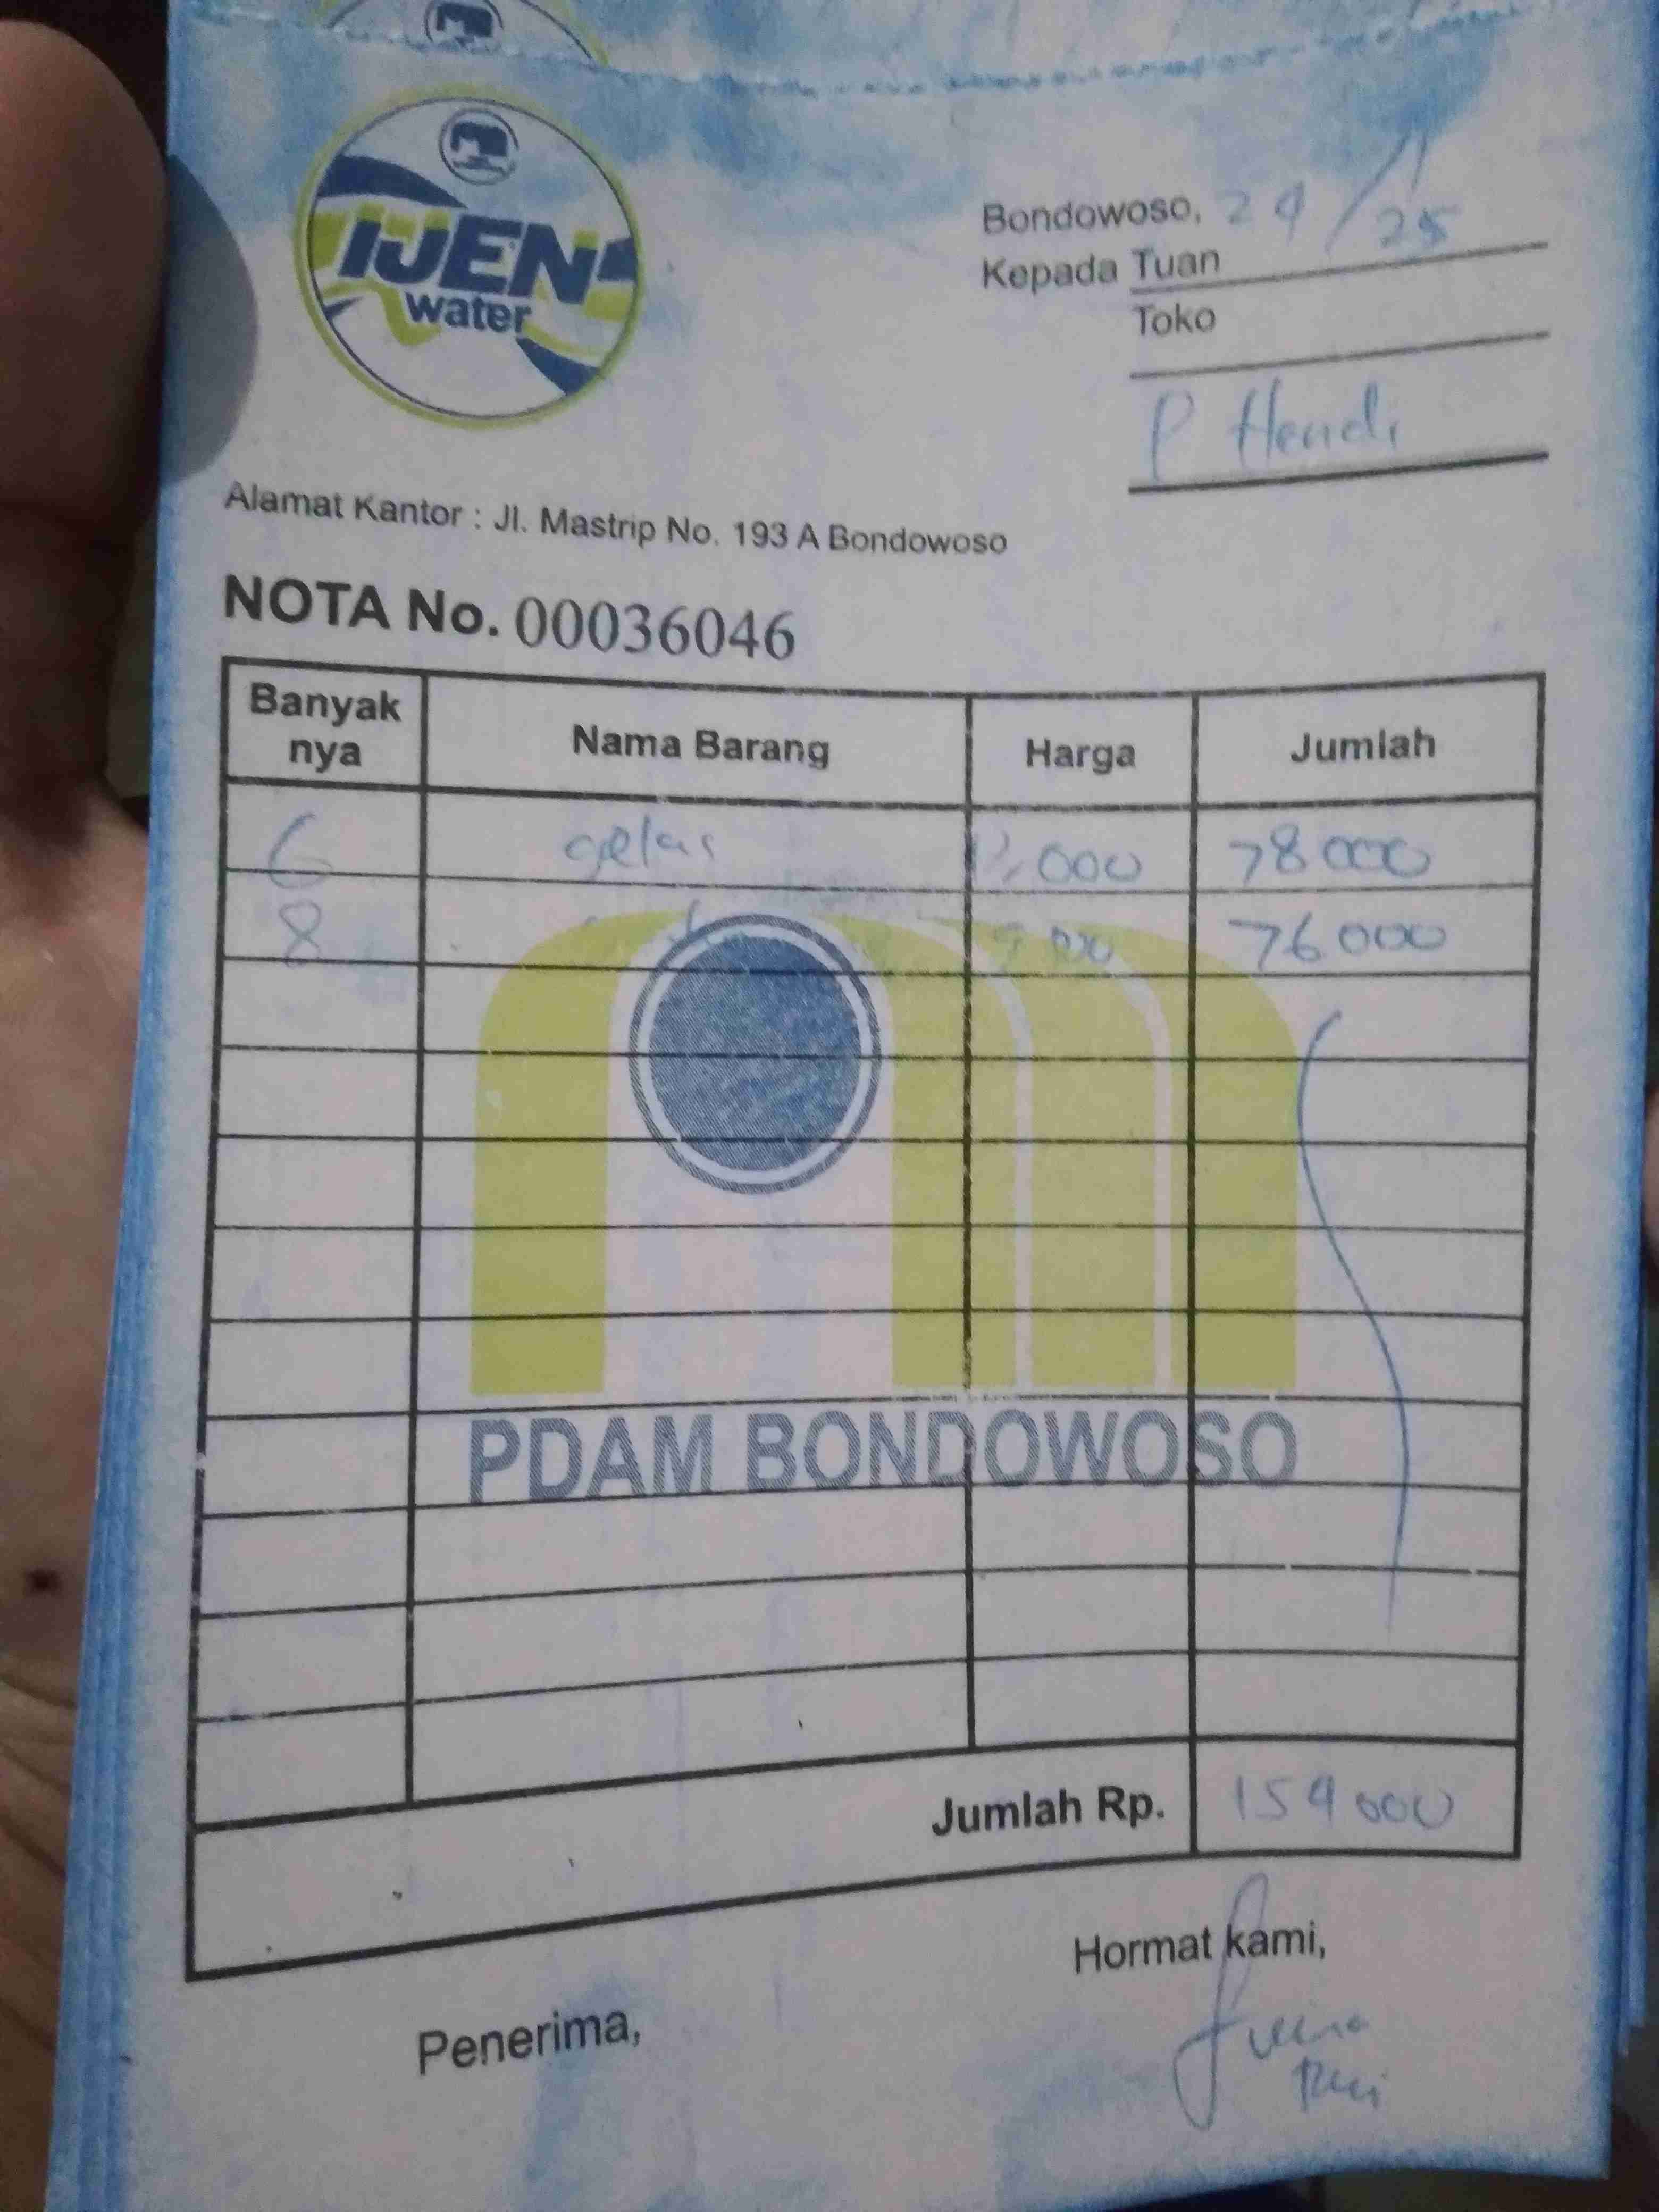 IJEN
water
Bondowoso, 24/11/25
Kepada Tuan
Toko
P Hendi
Alamat Kantor : Jl. Mastrip No. 193 A Bondowoso
NOTA No. 00036046
Banyak nya Nama Barang Harga Jumlah
6 gelas 13,000 78000
8 76000
PDAM BONDOWOSO
Jumlah Rp. 154000
Hormat kami,
Penerima,